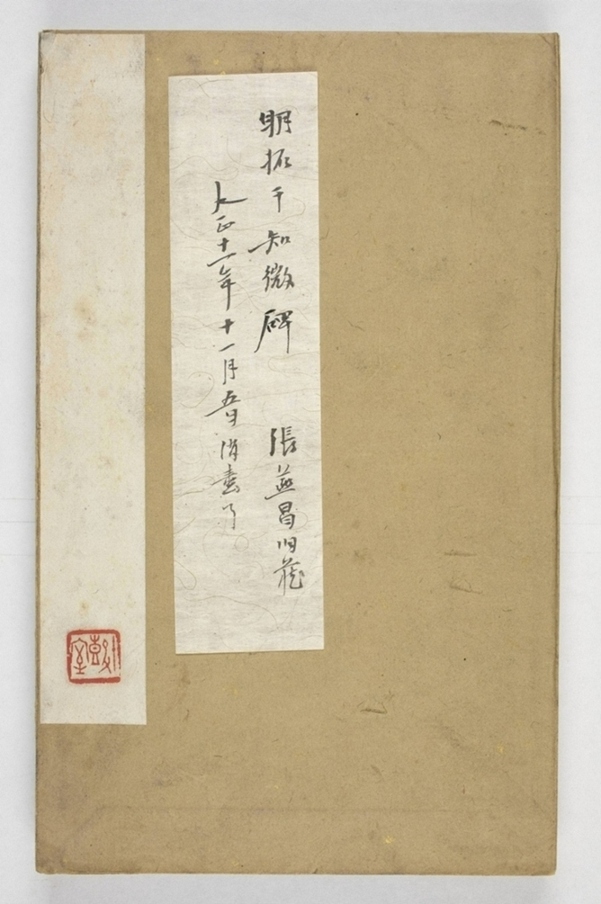 明拓于知微碑 張昌旧蔵
大正十一年十一月五日消毒了